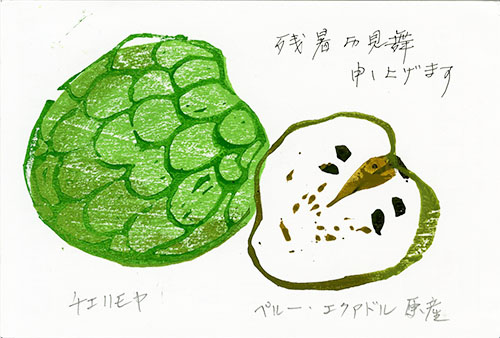 残暑お見舞
申し上げます
チエリモヤ
ペルー・エクアドル原産